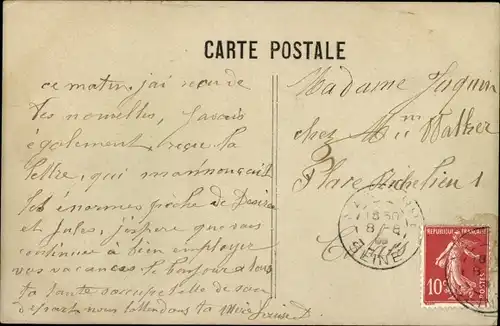 CARTE POSTALE
ce matin j'ai reçu de
tes nouvelles, j'avais
également reçu la
lettre, qui m'annonçait
les énormes pêche de Desiré
et Jules, j'espère que vous
continue à bien employer
vos vacances. le bonjour a tous
ta tante
départ nous t'attendons ta Mère
Madame
chez Mme Walker
2 Place Richelieu 1
18 30
8 - 8
SEINE
REPUBLIQUE FRANÇAISE
10c
POSTES